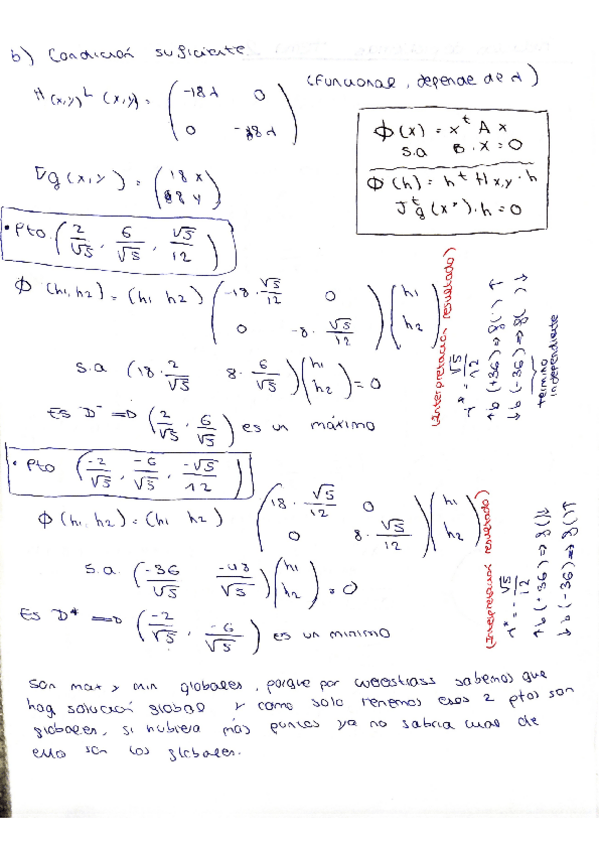 b) Condición suficiente
(Funcional, depende de λ)
H(x,y) L (x,y) = ( -18λ 0
0 -8λ )
φ(x) = xᵗ A x
s.a B · x = 0
φ(h) = hᵗ H x,y · h
Jᵗg (x*) · h = 0
∇g(x,y) = ( 18x
8y )
• Pto. ( 2/√5 , 6/√5 , √5/12 )
φ (h1, h2) = (h1 h2) ( -18 · √5/12 0
0 -8 · √5/12 ) ( h1
h2 )
s.a (18 · 2/√5 8 · 6/√5) ( h1
h2 ) = 0
Es D⁻ => ( 2/√5 , 6/√5 ) es un máximo
(Interpretación resultado)
λ* = √5/12
↑b (+36) => f( ) ↑
↓b (-36) => f( ) ↓
término
independiente
• Pto ( -2/√5 , -6/√5 , -√5/12 )
φ (h1, h2) = (h1 h2) ( 18 · √5/12 0
0 8 · √5/12 ) ( h1
h2 )
s.a. ( -36/√5 -48/√5 ) ( h1
h2 ) = 0
Es D⁺ => ( -2/√5 , -6/√5 ) es un minimo
(Interpretación resultado)
λ* = -√5/12
↑b (+36) => f( )↓
↓b (-36) => f( )↑
Son max y min globales, porque por weestrass sabemos que
hay solución global y como solo tenemos esos 2 ptos son
globales, si hubiera más puntos ya no sabria cual de
ellos son los globales.